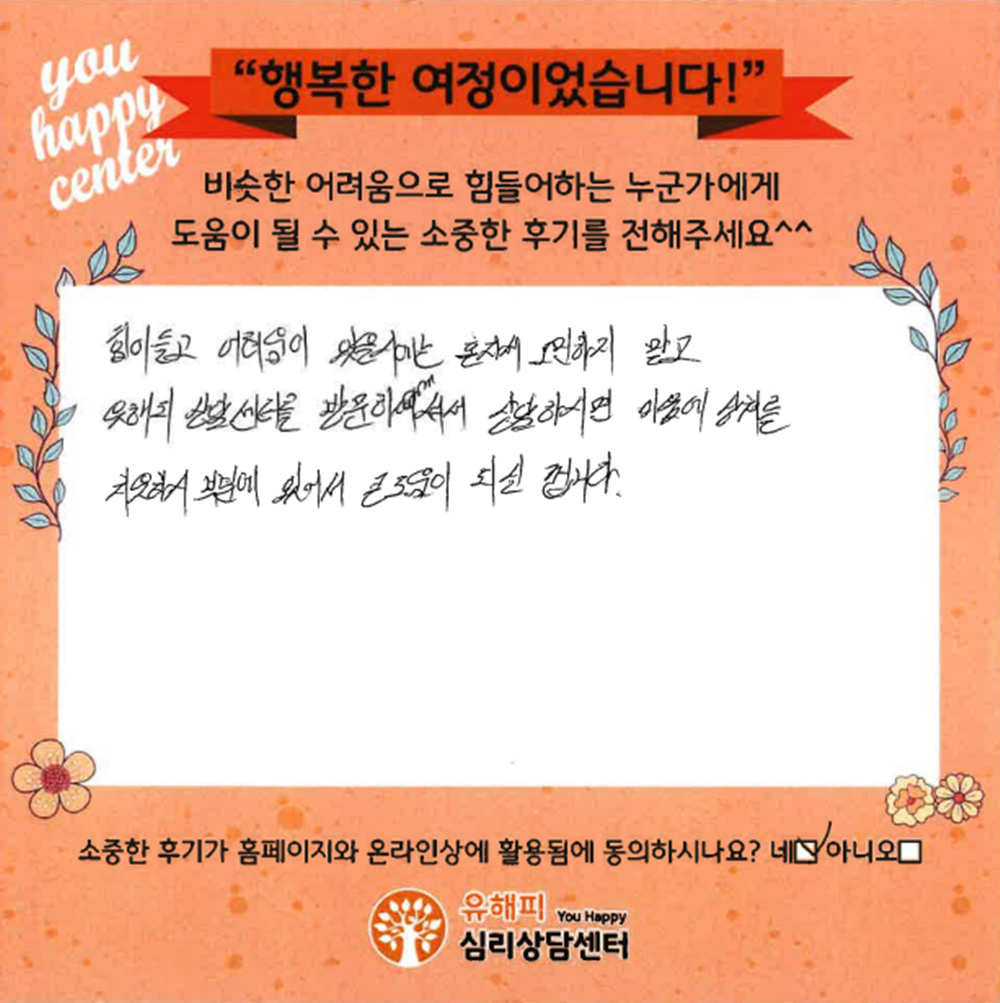 you
happy
center
“행복한 여정이었습니다!”
비슷한 어려움으로 힘들어하는 누군가에게
도움이 될 수 있는 소중한 후기를 전해주세요^^
힘이들고 어려움이 있을시에는 혼자서 고민하지 말고
유해피 상담센터를 방문하셔서 상담하시면 마음에 상처를
치유하기 부분에 있어서 큰 도움이 되실 겁니다.
소중한 후기가 홈페이지와 온라인상에 활용됨에 동의하시나요? 네 아니오
유해피 You Happy
심리상담센터